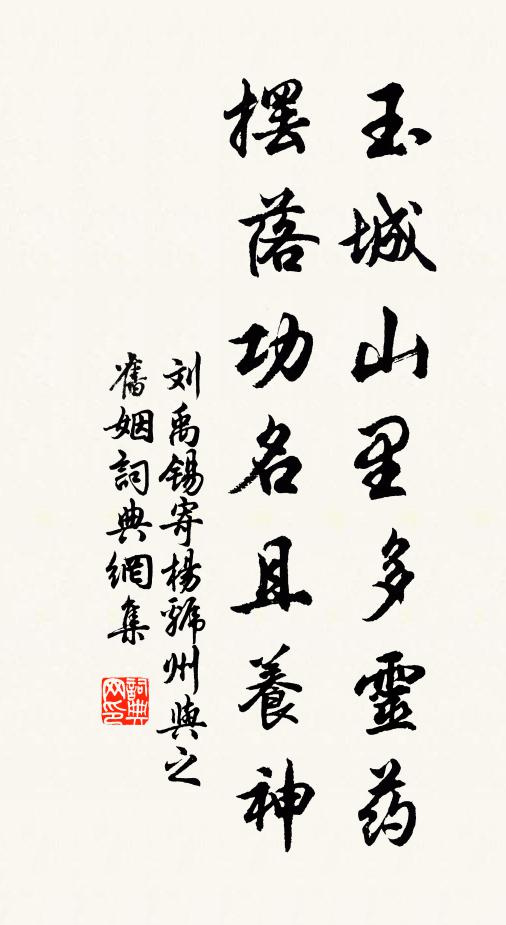 玉城山里多靈药
摆落功名且養神
刘禹锡寄楊虢州與之
舊姻詞典網集
詞典网印